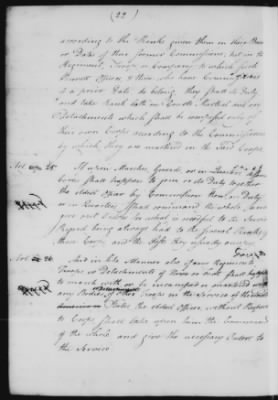 (22)
according to the Ranks given them in their
or Dates of their former Commissions, but in the
Regiment, Troop or Company to which such
Brevet Officers & those who have Commissions
of a prior Date do belong they shall do Duty
and take Rank both on Courts Martial and on
Detachments which shall be composed only of
their own Corps according to the Commissions
by which they are mustered in the said Corps.
Art. 25. If upon Marches, Guards or in Quarters different
Corps shall happen to join or do Duty together
the eldest Officer by Commission there on Duty
or in Quarters shall command the whole and
give out Orders for what is needful to the Service
Regard being always had to the several Ranks of
those Corps and the Posts they usually occupy
Art. 26. And in like Manner also if any Regiments
Troops or Detachments of Horse or Foot shall happen
to march with or be encamped or quartered with
any Bodies of other Troops in the Service of the
States the eldest Officer without Respect
to Corps shall take upon him the Command
of the whole and give the necessary Orders to
the Service